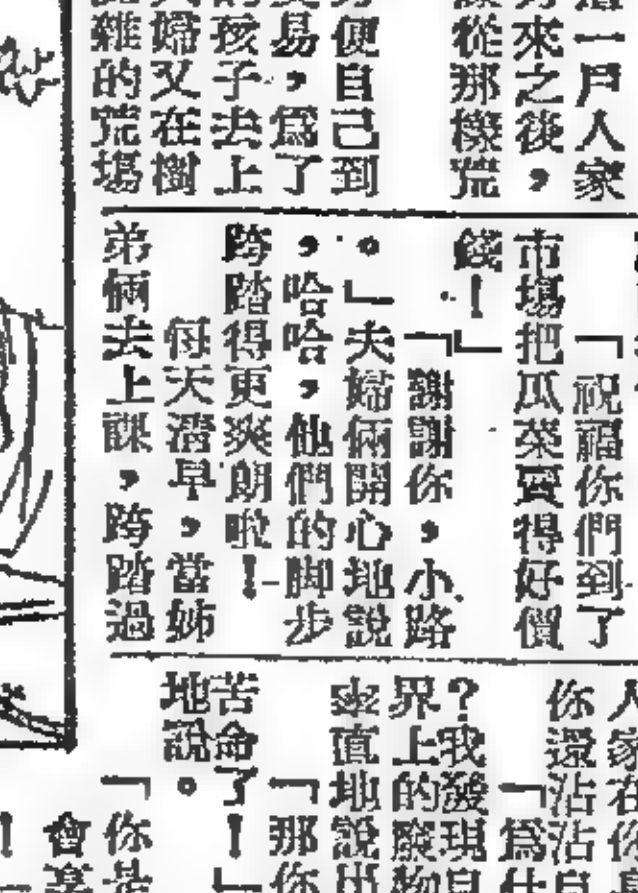 一戶人家
來之後，
從那樣荒
便自己到
易，為了
孩子去上
婦又在樹
雜的荒場
「祝福你們到了
市場把瓜菜賣得好價
錢！」
「謝謝你，小路
。」夫婦倆開心地說
，哈哈，他們的脚步
跨踏得更爽朗啦！
每天清早，當姊
弟倆去上課，跨踏過
人家在你
你還沾沾自
「為什
？我發現自
界上的廢物
率直地說出
「那你
苦命了！」
地說。
「你是
會